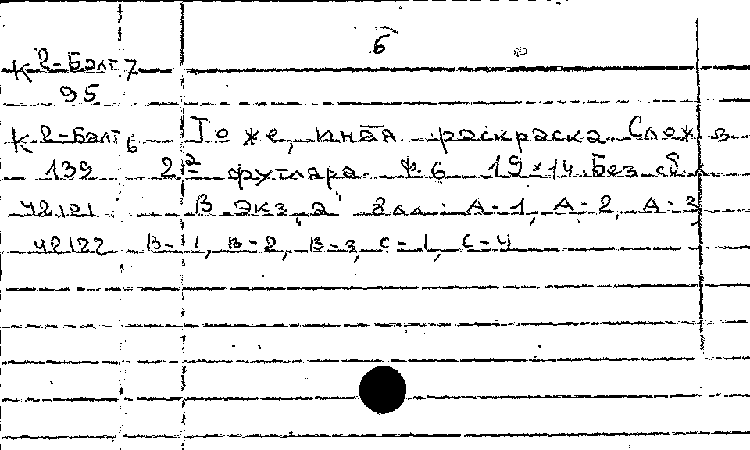 б
К 2-Балт 7
95
К 2-Балт 6 То же, иная раскраска Слож в
139 2 футляра. Ф. 6 19×14. Без
42121 В экз. "а" : А-1, А-2, А-3,
42122 В-1, В-2, В-3, С-1, С-4